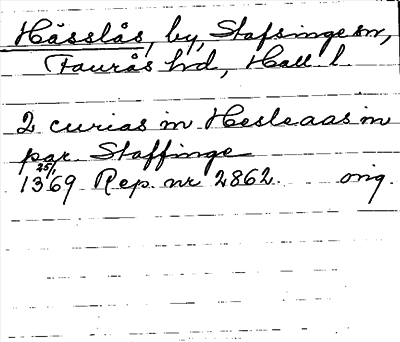 Hässlås, by, Stafsinge sn,
Faurås hd, Hall l.
2 curias in Hesleaas in
par. Staffinge
25/1 1369 Rep. nr 2862. orig.